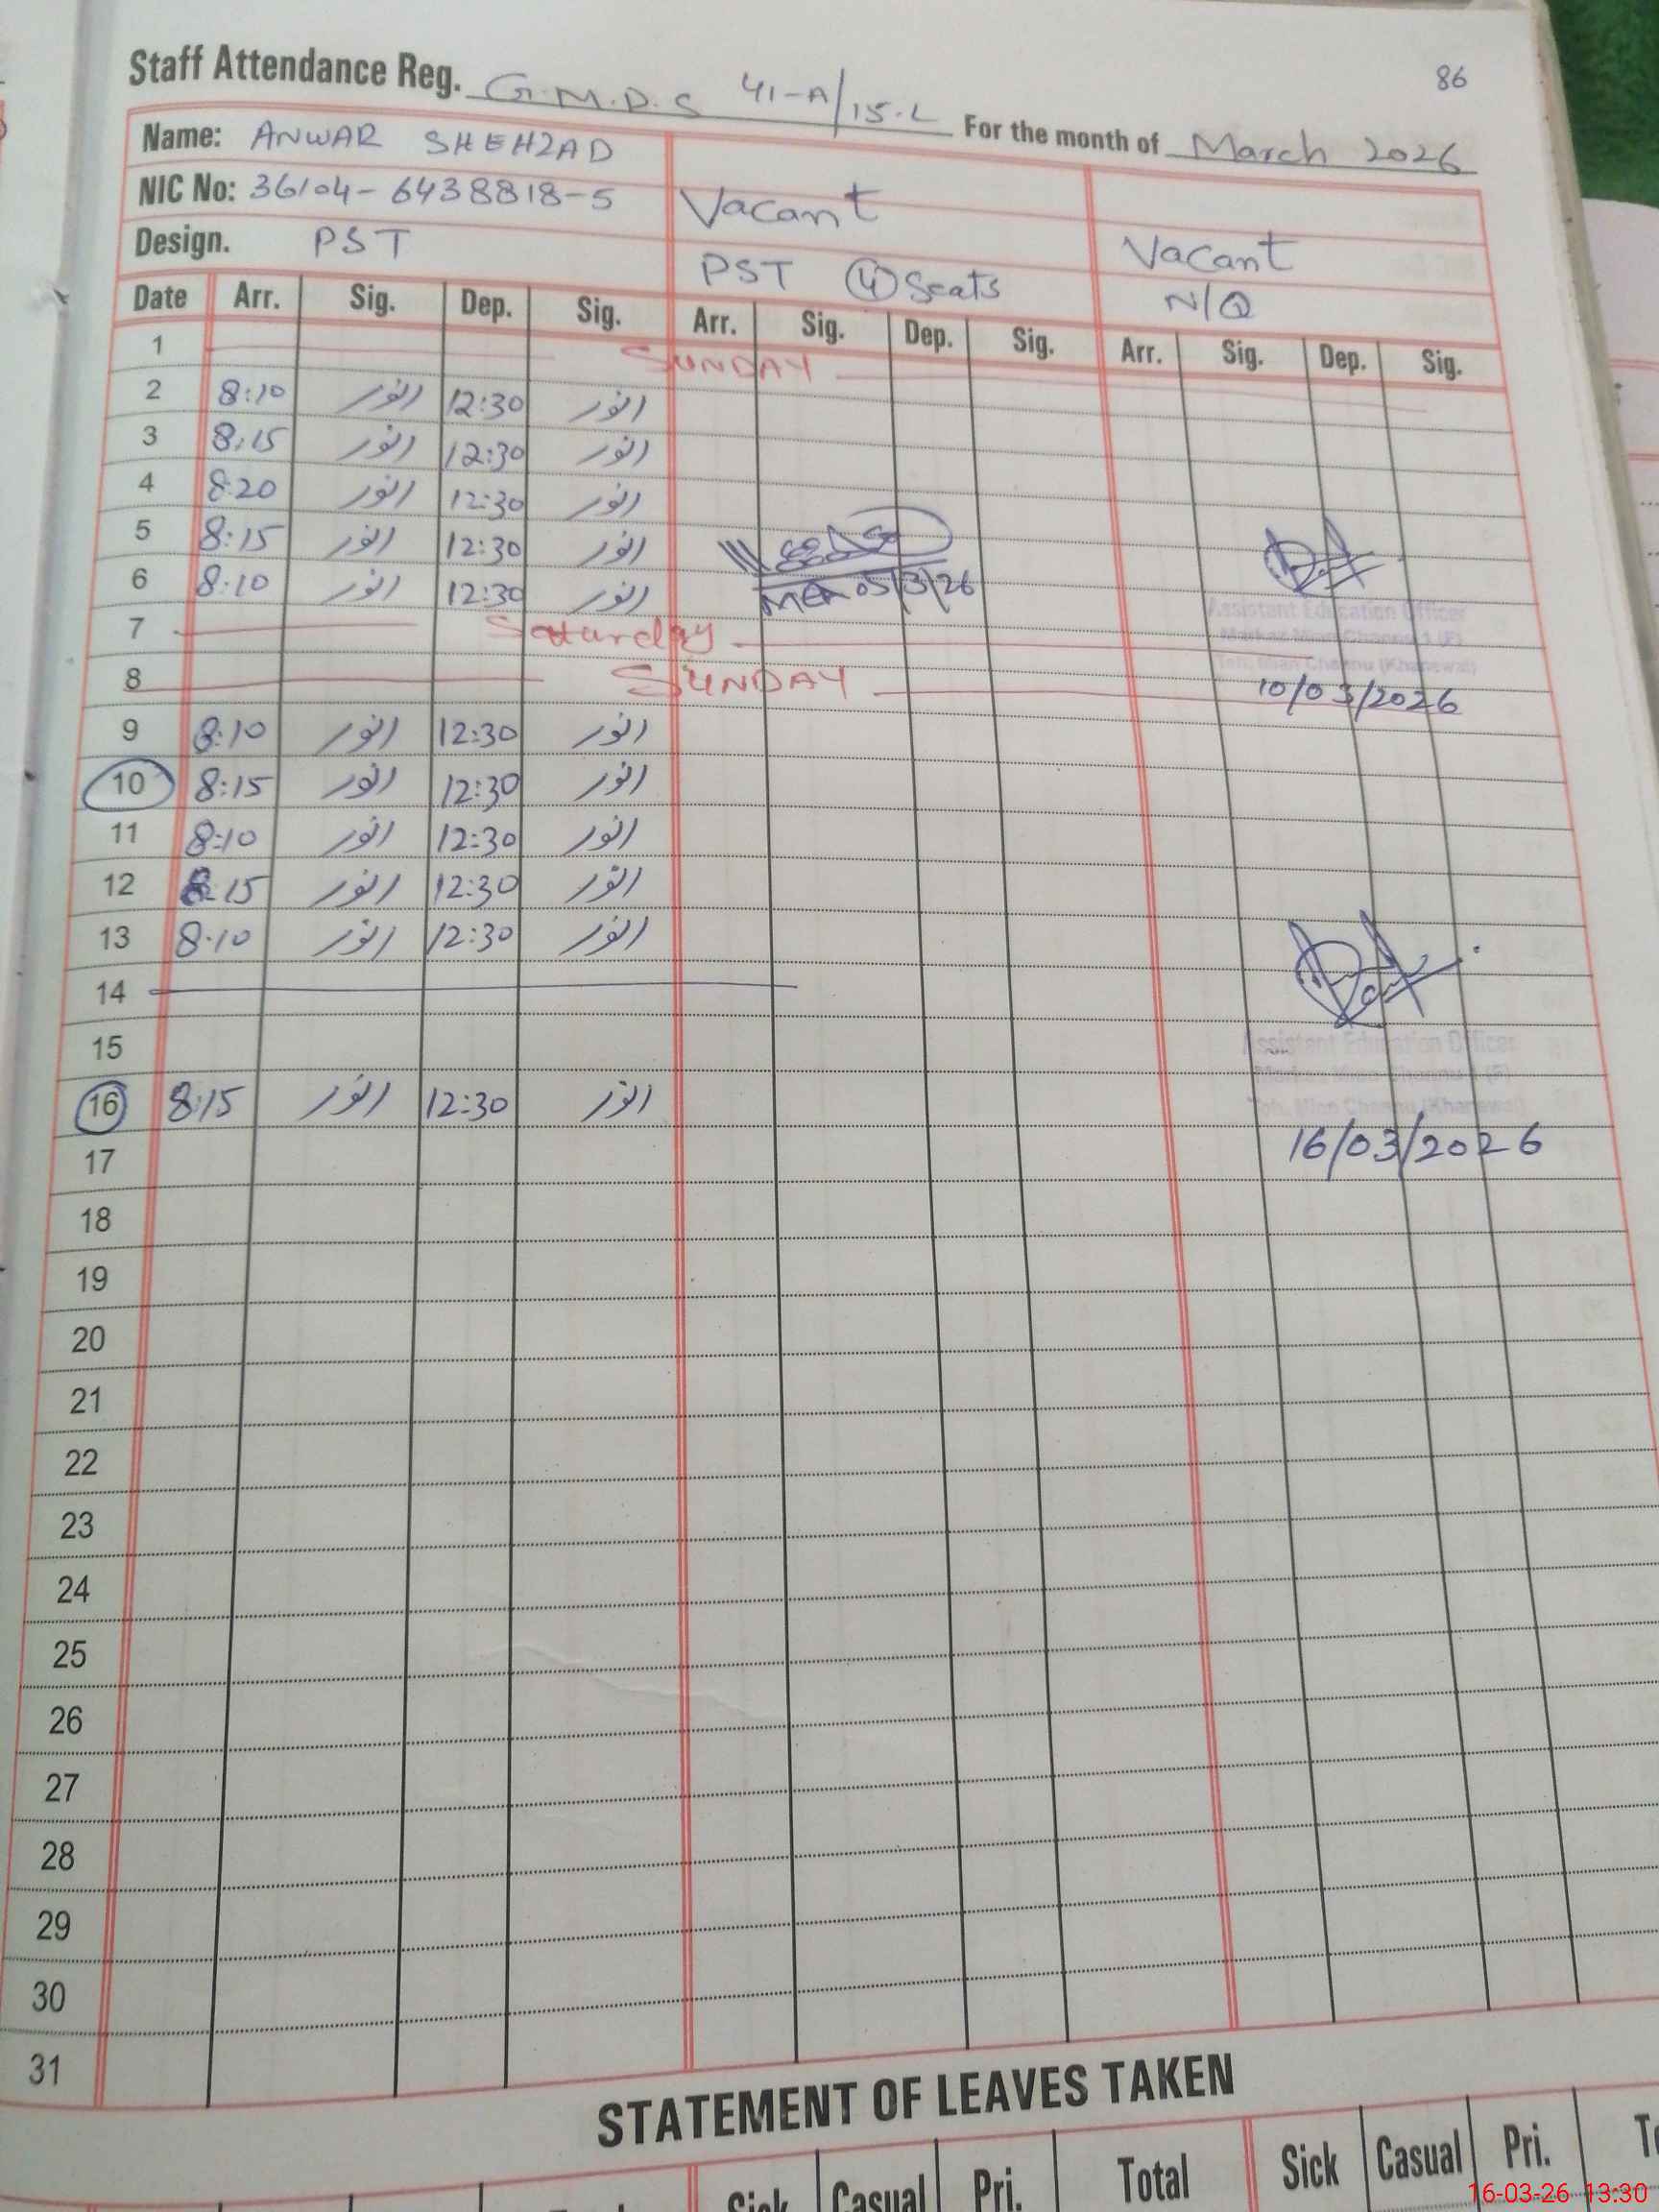 86
Staff Attendance Reg. G.M.P.S 41-A/15.L For the month of March 2026
Name: ANWAR SHEHZAD
NIC No: 36104-6438818-5 Vacant
Design. PST PST ④ Seats Vacant
N/Q
Date Arr. Sig. Dep. Sig. Arr. Sig. Dep. Sig. Arr. Sig. Dep. Sig.
1 SUNDAY
2 8:10 انور 12:30 انور
3 8:15 انور 12:30 انور
4 8:20 انور 12:30 انور
5 8:15 انور 12:30 انور
6 8:10 انور 12:30 انور MEA 05/3/26
Assistant Education Officer
7 Saturday
Teh. Mian Channu (Khanewal)
8 SUNDAY 10/03/2026
9 8:10 انور 12:30 انور
10 8:15 انور 12:30 انور
11 8:10 انور 12:30 انور
12 8:15 انور 12:30 انور
13 8:10 انور 12:30 انور
14
15 Assistant Education Officer
16 8:15 انور 12:30 انور
Teh. Mian Channu (Khanewal)
17 16/03/2026
18
19
20
21
22
23
24
25
26
27
28
29
30
31
STATEMENT OF LEAVES TAKEN
Sick Casual Pri. Total Sick Casual Pri.
16-03-26 13:30